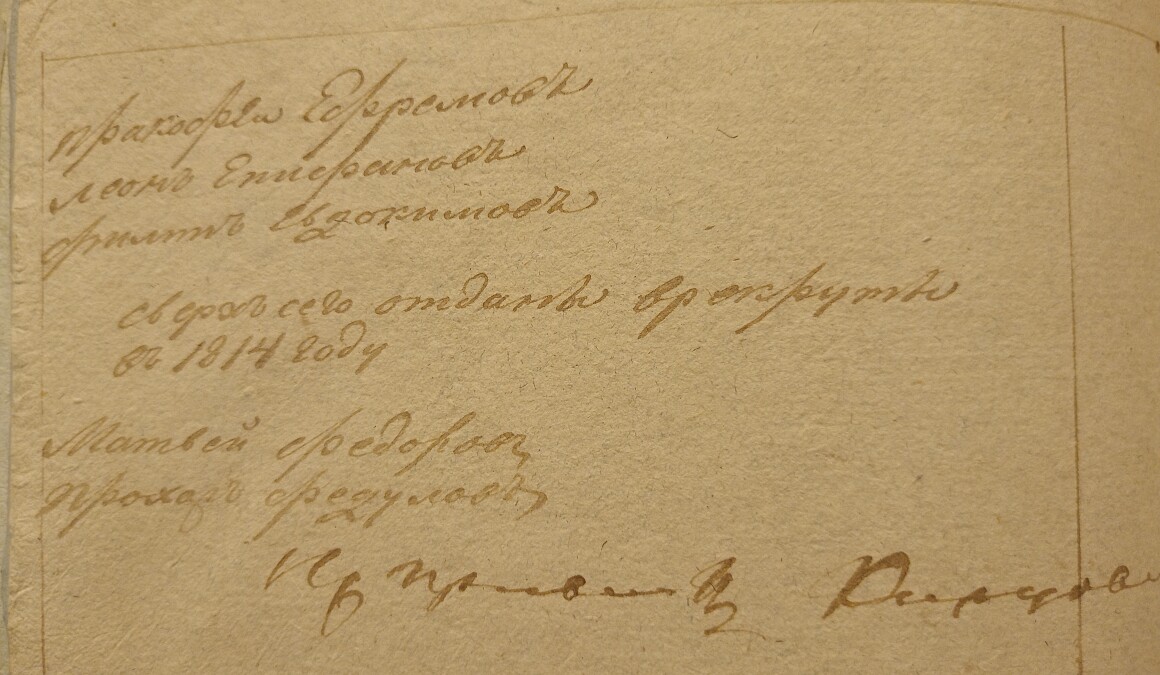 Пракофеи Ефремовъ
Леонъ Епифановъ
Филипъ Евдокимовъ
сверхъ сего отданы врекруты
въ 1814 году
Матвей Федоровъ
Прохоръ Федуловъ